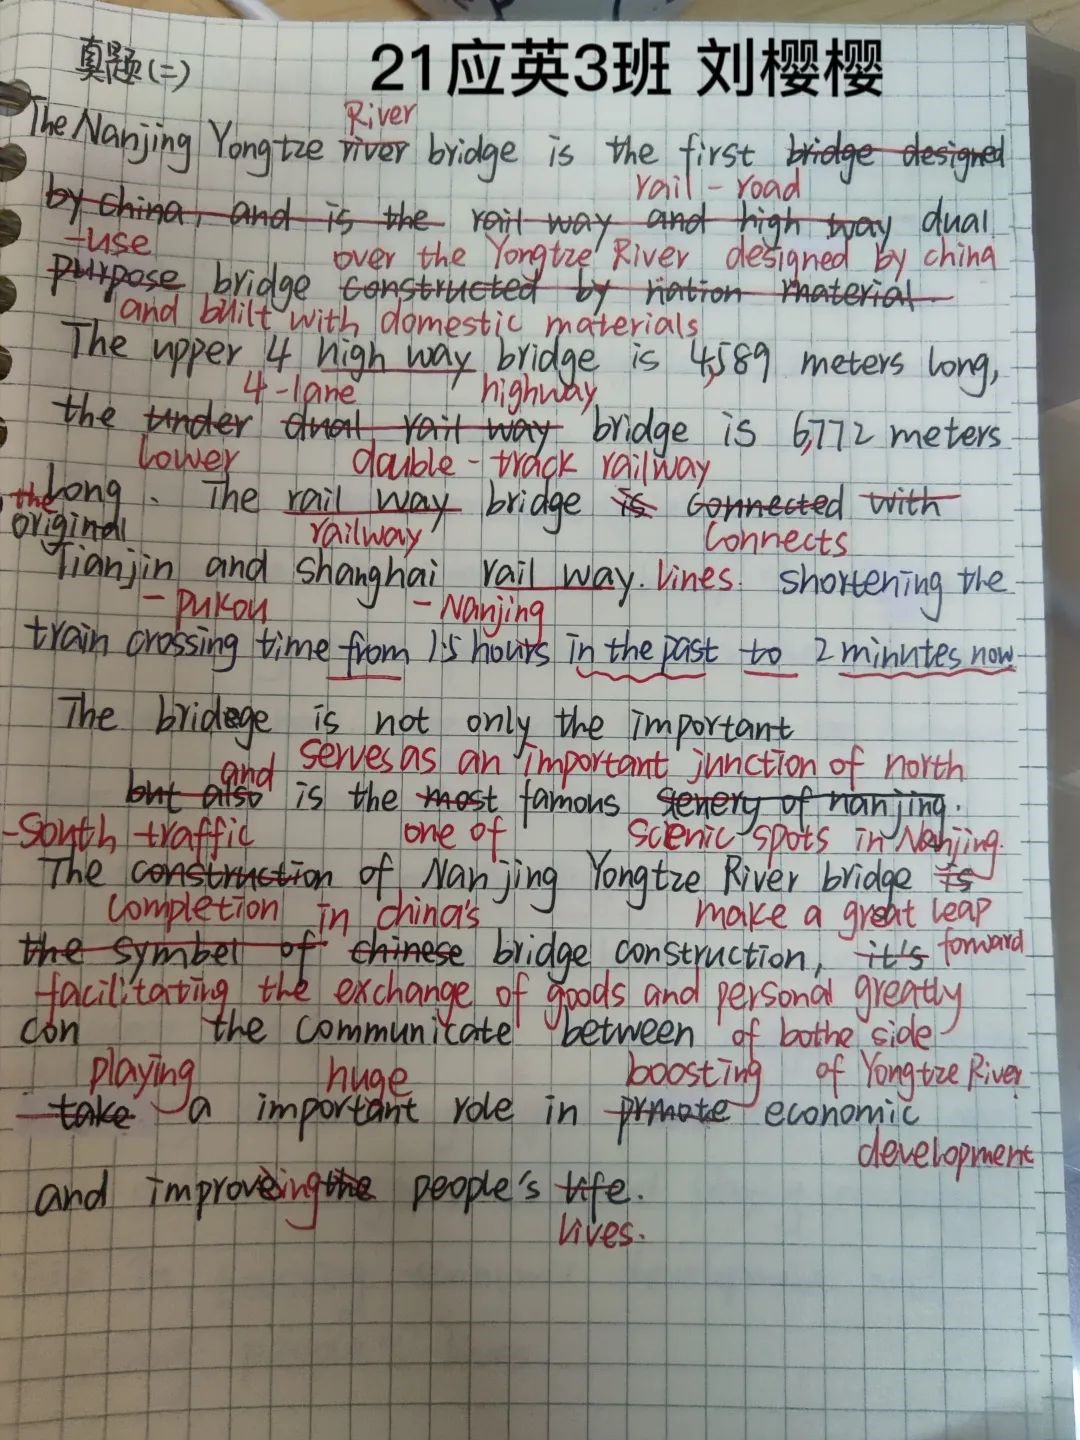 真题(二)
21应英3班 刘樱樱
River
The Nanjing Yongtze river bridge is the first bridge designed
rail-road
by china, and is the rail way and high way dual
-use over the Yongtze River designed by china
purpose bridge constructed by nation material
and built with domestic materials
The upper 4 high way bridge is 4,589 meters long,
4-lane highway
the under dual rail way bridge is 6,772 meters
lower double-track railway
long. The rail way bridge is connected with
the original railway connects
Tianjin and shanghai rail way. lines. shortening the
-pukou -Nanjing
train crossing time from 1.5 hours in the past to 2 minutes now
The bridege is not only the important
and serves as an important junction of north
but also is the most famous senery of nanjing.
-south traffic one of scienic spots in Nanjing.
The construction of Nanjing Yongtze River bridge is
completion in china's make a great leap
the symbel of chinese bridge construction, it's forward
facilitating the exchange of goods and personal greatly
con the communicate between of bothe side
playing huge boosting of Yongtze River
take a important role in prmote economic
development
and improveing the people's life.
lives.